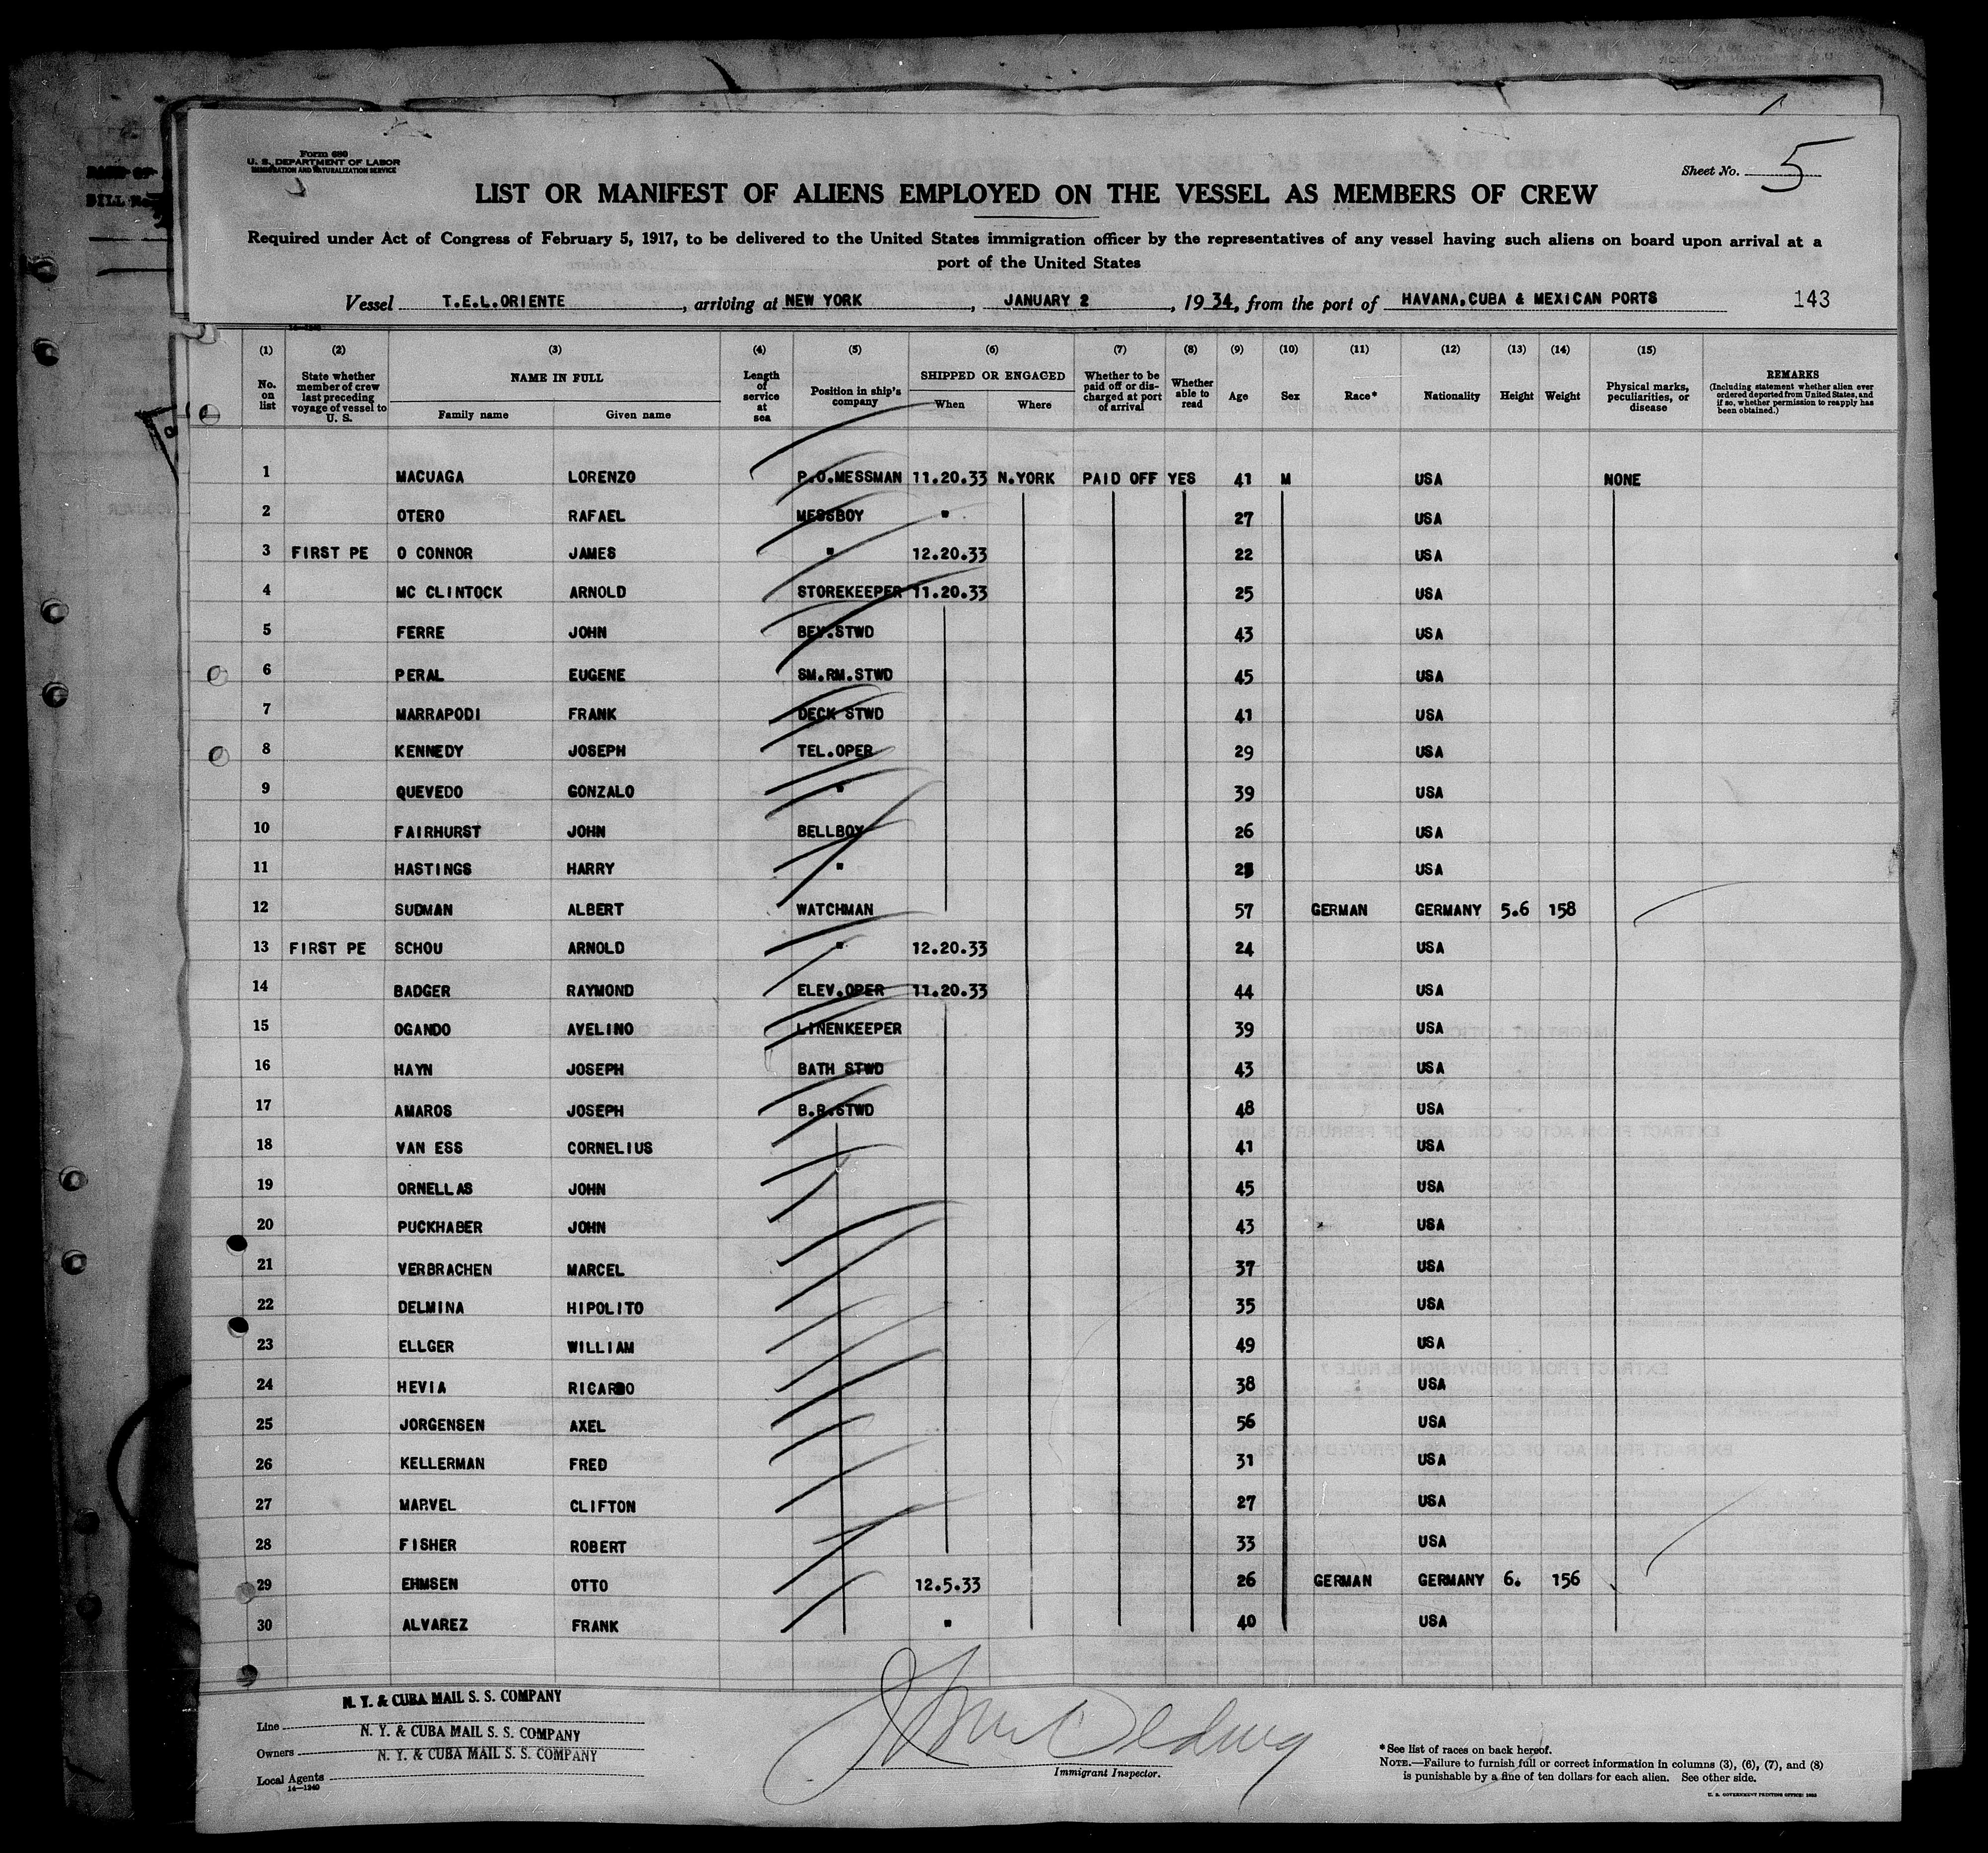 Form 680
U. S. DEPARTMENT OF LABOR
IMMIGRATION AND NATURALIZATION SERVICE
Sheet No. 5
LIST OR MANIFEST OF ALIENS EMPLOYED ON THE VESSEL AS MEMBERS OF CREW
Required under Act of Congress of February 5, 1917, to be delivered to the United States immigration officer by the representatives of any vessel having such aliens on board upon arrival at a
port of the United States
Vessel T.E.L.ORIENTE, arriving at NEW YORK, JANUARY 2, 1934, from the port of HAVANA,CUBA & MEXICAN PORTS 143
(1) (2) (3) (4) (5) (6) (7) (8) (9) (10) (11) (12) (13) (14) (15)
No. on list State whether member of crew last preceding voyage of vessel to U. S. NAME IN FULL Family name Given name Length of service at sea Position in ship's company SHIPPED OR ENGAGED When Where Whether to be paid off or discharged at port of arrival Whether able to read Age Sex Race* Nationality Height Weight Physical marks, peculiarities, or disease REMARKS (Including statement whether alien ever ordered deported from United States, and if so, whether permission to reapply has been obtained.)
1 MACUAGA LORENZO P.O.MESSMAN 11.20.33 N.YORK PAID OFF YES 41 M USA NONE
2 OTERO RAFAEL MESSBOY " 27 USA
3 FIRST PE O CONNOR JAMES " 12.20.33 22 USA
4 MC CLINTOCK ARNOLD STOREKEEPER 11.20.33 25 USA
5 FERRE JOHN BEV.STWD 43 USA
6 PERAL EUGENE SM.RM.STWD 45 USA
7 MARRAPODI FRANK DECK STWD 41 USA
8 KENNEDY JOSEPH TEL.OPER 29 USA
9 QUEVEDO GONZALO " 39 USA
10 FAIRHURST JOHN BELLBOY 26 USA
11 HASTINGS HARRY " USA
12 SUDMAN ALBERT WATCHMAN 57 GERMAN GERMANY 5.6 158
13 FIRST PE SCHOU ARNOLD " 12.20.33 24 USA
14 BADGER RAYMOND ELEV.OPER 11.20.33 44 USA
15 OGANDO AVELINO LINENKEEPER 39 USA
16 HAYN JOSEPH BATH STWD 43 USA
17 AMAROS JOSEPH B.R.STWD 48 USA
18 VAN ESS CORNELIUS 41 USA
19 ORNELLAS JOHN 45 USA
20 PUCKHABER JOHN 43 USA
21 VERBRACHEN MARCEL 37 USA
22 DELMINA HIPOLITO 35 USA
23 ELLGER WILLIAM 49 USA
24 HEVIA RICARDO 38 USA
25 JORGENSEN AXEL 56 USA
26 KELLERMAN FRED 31 USA
27 MARVEL CLIFTON 27 USA
28 FISHER ROBERT 33 USA
29 EHMSEN OTTO 12.5.33 26 GERMAN GERMANY 6. 156
30 ALVAREZ FRANK " 40 USA
Line N. Y. & CUBA MAIL S. S. COMPANY
Owners N. Y. & CUBA MAIL S. S. COMPANY
Local Agents N. Y. & CUBA MAIL S. S. COMPANY
14—1240
Immigrant Inspector.
*See list of races on back hereof.
NOTE.—Failure to furnish full or correct information in columns (3), (6), (7), and (8)
is punishable by a fine of ten dollars for each alien. See other side.